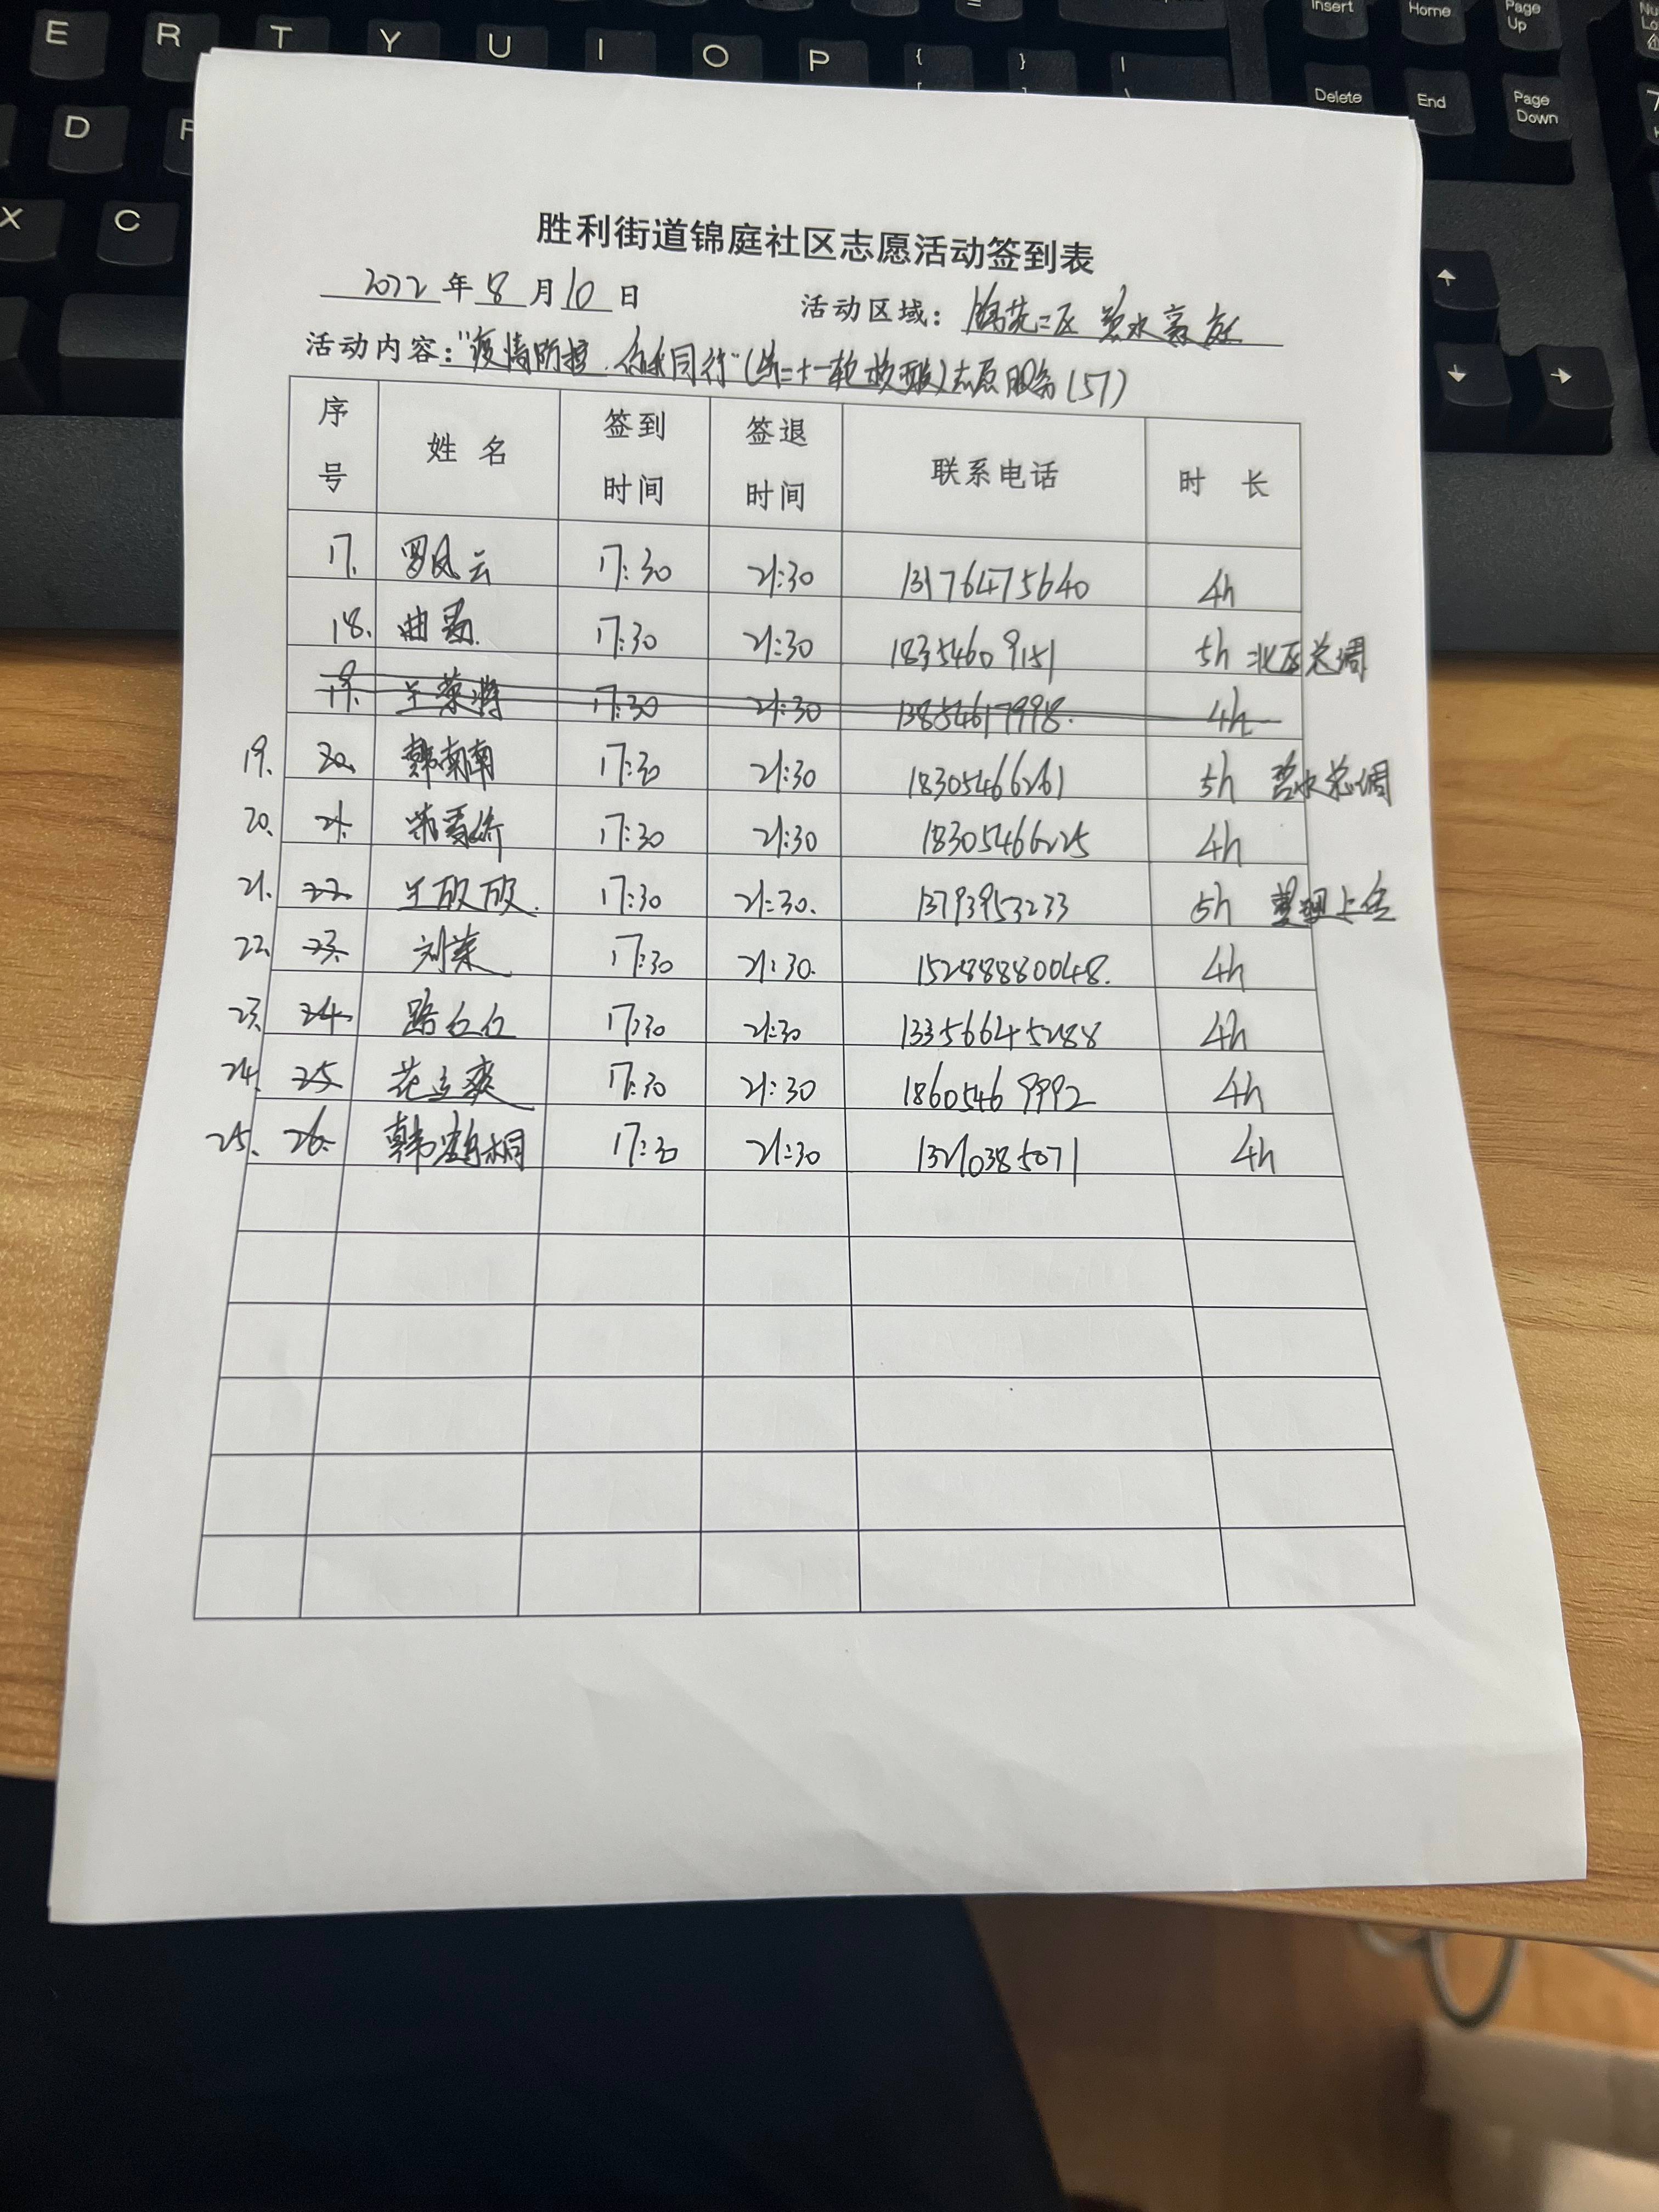 E R T Y U I O P { } |
Insert Home Page Up
D F Delete End Page Down
X C
胜利街道锦庭社区志愿活动签到表
2022 年 8 月 10 日 活动区域: 锦苑二区
活动内容: "疫情防控.你我同行"(第二十一轮核酸)志愿服务(57)
序号 姓名 签到时间 签退时间 联系电话 时长
17. 罗凤云 17:30 21:30 13176475640 4h
18. 曲 17:30 21:30 18354609151 5h 北区总调
19. 王 17:30 21:30 13854617998. 4h
19. 20. 韩南南 17:30 21:30 18305466261 5h 总调
20. 21. 17:30 21:30 18305466225 4h
21. 22. 王欣欣. 17:30 21:30. 13793953233 5h 管理上堡
22. 23. 刘荣 17:30 21:30. 15288880048. 4h
23. 24. 路红红 17:30 21:30 13356645288 4h
24. 25 花立爽 17:30 21:30 18605469992 4h
25. 26. 韩鹤桐 17:30 21:30 13210385071 4h